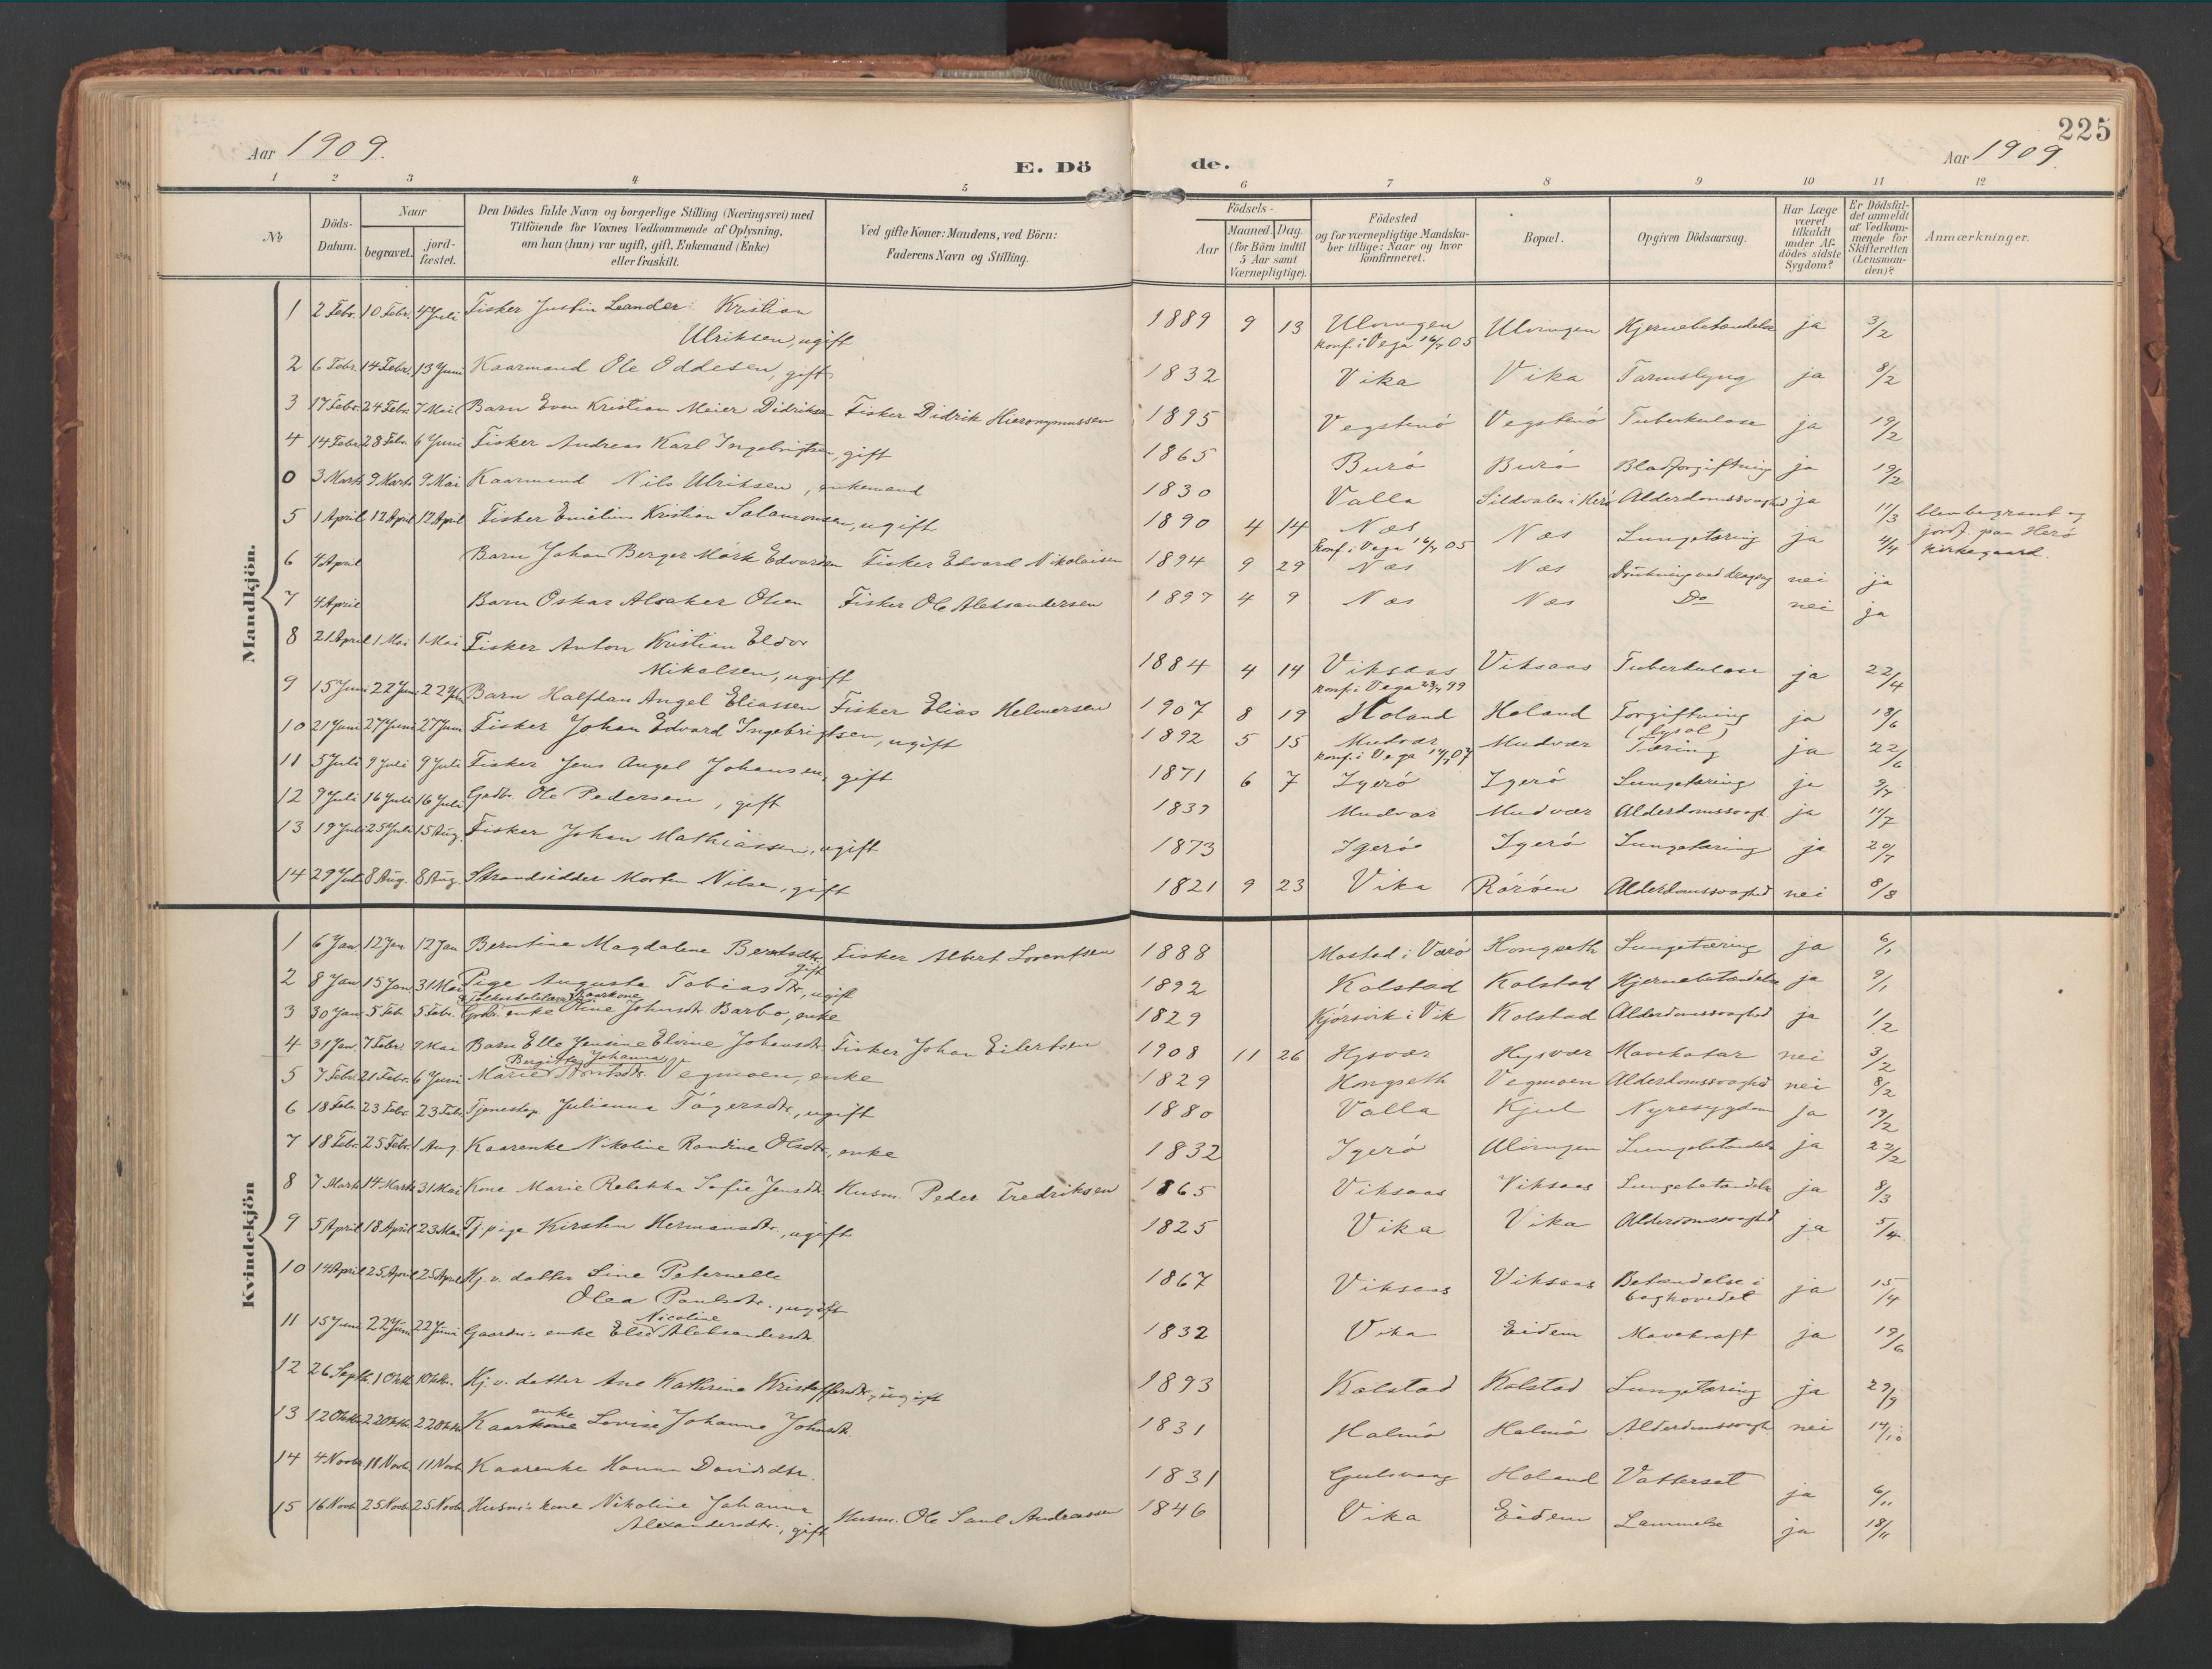 225
Aar 1909.
E. Dö de.
Aar 1909.
1 2 3 4 5 6 7 8 9 10 11 12
No
Döds-Datum.
Naar
begravet.
jord-fæstet.
Den Dödes fulde Navn og borgerlige Stilling (Næringsvei) med
Tilföiende for Voxnes Vedkommende af Oplysning,
om han (hun) var ugift, gift, Enkemand (Enke)
eller fraskilt.
Ved gifte Koner: Mandens, ved Börn:
Faderens Navn og Stilling.
Födsels-
Aar
Maaned. Dag.
(for Börn indtil
5 Aar samt
Værnepligtige).
Födested
og for værnepligtige Mandska-
ber tillige: Naar og hvor
konfirmeret.
Bopæl.
Opgiven Dödsaarsag.
Har Læge
været
tilkaldt
under Af-
dödes sidste
Sygdom?
Er Dödsfal-
det anmeldt
af Vedkom-
mende for
Skifteretten
(Lensman-
den)?
Anmærkninger.
Mandkjön.
1 2 Febr. 10 Febr. 4 Juli Fisker Justin Leander Kristian
Ulriksen, ugift 1889 9 13 Ulvingen Ulvingen Hjernebetændelse ja 3/2
konf. i Vega 16/7 05
2 6 Febr. 14 Febr. 13 Juni Kaarmand Ole Oddesen, gift 1832 Vika Vika Tarmslyng ja 8/2
3 17 Febr. 24 Febr. 7 Mai Barn Even Kristian Meier Didriksen Fisker Didrik Hieronymussen 1895 Vegstenö Vegstenö Tuberkulose ja 19/2
4 14 Febr. 28 Febr. 6 Juni Fisker Andreas Karl Ingebrigtsen, gift 1865 Burö Burö Blodforgiftning ja 19/2
0 3 Marts 9 Marts 9 Mai Kaarmand Nils Ulriksen, enkemand 1830 Valla Sildvalen i Herö Alderdomssvaghed ja 11/3 blev begravet og
jordf. paa Herö
kirkegaard.
5 1 April 12 April 12 April Fisker Emelius Kristian Salamonsen, ugift 1890 4 14 Næs Næs Lungetæring ja 4/4
konf. i Vega 16/7 05
6 4 April Barn Johan Berger Mörk Edvardsen Fisker Edvard Nikolaisen 1894 9 29 Næs Næs Drukning nei ja
7 4 April Barn Oskar Alsaker Olsen Fisker Ole Aleksandersen 1897 4 9 Næs Næs Do nei ja
8 21 April 1 Mai 1 Mai Fisker Anton Kristian Eldor
Mikalsen, ugift 1884 4 14 Viksaas Viksaas Tuberkulose ja 22/4
konf. i Vega 23/7 99
9 15 Juni 22 Juni 22 Juni Barn Halfdan Angel Eliassen Fisker Elias Helmersen 1907 8 19 Holand Holand Forgiftning ja 18/6
(lysol)
10 21 Juni 27 Juni 27 Juni Fisker Johan Edvard Ingebrigtsen, ugift 1892 5 15 Mudvær Mudvær Tæring ja 22/6
konf. i Vega 14/7 07
11 5 Juli 9 Juli 9 Juli Fisker Jens Angel Johansen, gift 1871 6 7 Igerö Igerö Lungetæring ja 9/7
12 9 Juli 16 Juli 16 Juli Gadbr. Ole Pedersen, gift 1839 Mudvær Mudvær Alderdomssvagh. ja 11/7
13 19 Juli 25 Juli 15 Aug. Fisker Johan Mathiassen, ugift 1873 Igerö Igerö Lungetæring ja 20/7
14 29 Juli 8 Aug. 8 Aug. Strandsidder Morten Nilsen, gift 1821 9 23 Vika Röröen Alderdomssvaghed nei 8/8
Kvindekjön
1 6 Jan 12 Jan 12 Jan Berntine Magdalene Berntsdtr. Fisker Albert Lorentsen 1888 Mostad i Værö Hongseth Lungetæring ja 6/1
gift
2 8 Jan 15 Jan 31 Mai Pige Augusta Tobiasdtr., ugift 1892 Kolstad Kolstad Hjernebetændelse ja 9/1
3 30 Jan 5 Feb. 5 Febr. enke Oline Johnsdtr. Barbo, enke 1829 Kjörsvik i Vik Kolstad Alderdomssvaghed ja 1/2
4 31 Jan. 7 Febr. 9 Mai Barn Elle Jensine Elvine Johansdtr Fisker Johan Eilertsen 1908 11 26 Hysvær Hysvær Mavekatar nei 3/2
Bergitte Johanna
5 7 Febr. 21 Febr. 6 Juni Marie Vegmoen, enke 1829 Hongseth Vegmoen Alderdomssvaghed nei 8/2
6 18 Feb. 23 Febr. 23 Feb. Tjenestep. Julianna Tögersdtr., ugift 1880 Valla Kjul Nyresygdom ja 19/2
7 18 Febr. 25 Febr. 1 Aug. Kaarenke Nikoline Randine Olsdtr., enke 1832 Igerö Ulvingen Lungebetændelse ja 22/2
8 7 Marts 14 Marts 31 Mai Kone Marie Rebekka Sofie Jensdtr. Husm. Peder Fredriksen 1865 Viksaas Viksaas Lungebetændelse ja 8/3
9 5 April 18 April 23 Mai Tj. pige Kirsten Hermansdtr., ugift 1825 Vika Vika Alderdomssvaghed ja 5/4
10 14 April 25 April 25 April Hj. v. datter Line Peternelle
Olea Paulsdtr., ugift 1867 Viksaas Viksaas Betændelse i ja 15/4
baghovedet
Nicoline
11 15 Juni 22 Juni 22 Juni Gaardm. enke Else Aleksandersdtr. 1832 Vika Eidem Mavekræft ja 19/6
12 26 Septb. 1 Oktb. 10 Oktbr. Hj. v. datter Ane Kathrine Kristoffersdtr., ugift 1893 Kolstad Kolstad Lungetæring ja 29/9
enke
13 12 Oktbr. 22 Oktbr. 22 Oktbr Kaarkone Lovise Johanna Johnsdtr. 1831 Halmö Halmö Alderdomssvagh. nei 14/10
14 4 Novbr 11 Novb. 11 Novb Kaarenke Hanna Davidsdtr. 1831 Gulsvaag Holand Vattersot ja 6/11
15 16 Novb. 25 Novb. 25 Novbr Husm's kone Nikoline Johanna Husm. Ole Saul Andreassen 1846 Vika Eidem Lammelse ja 18/11
Alexandersdtr., gift